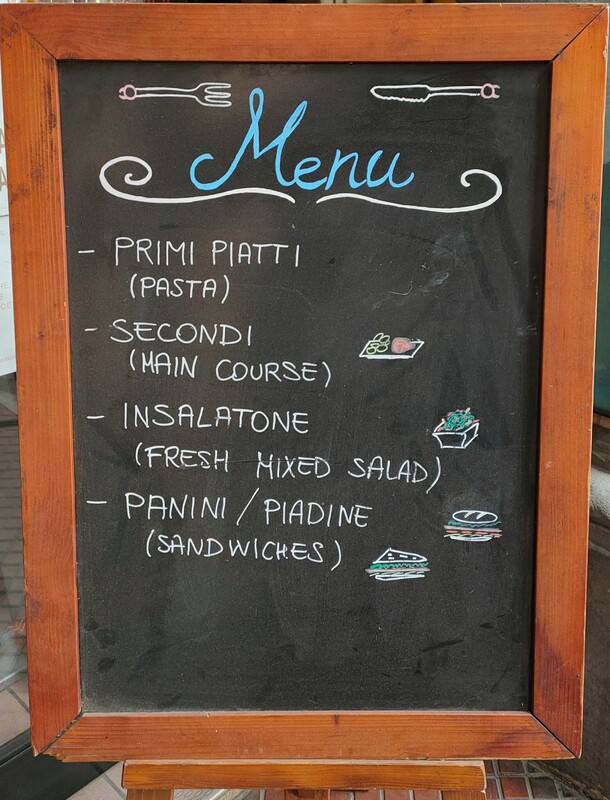 Menu
- PRIMI PIATTI
(PASTA)
- SECONDI
(MAIN COURSE)
- INSALATONE
(FRESH MIXED SALAD)
- PANINI / PIADINE
(SANDWICHES)